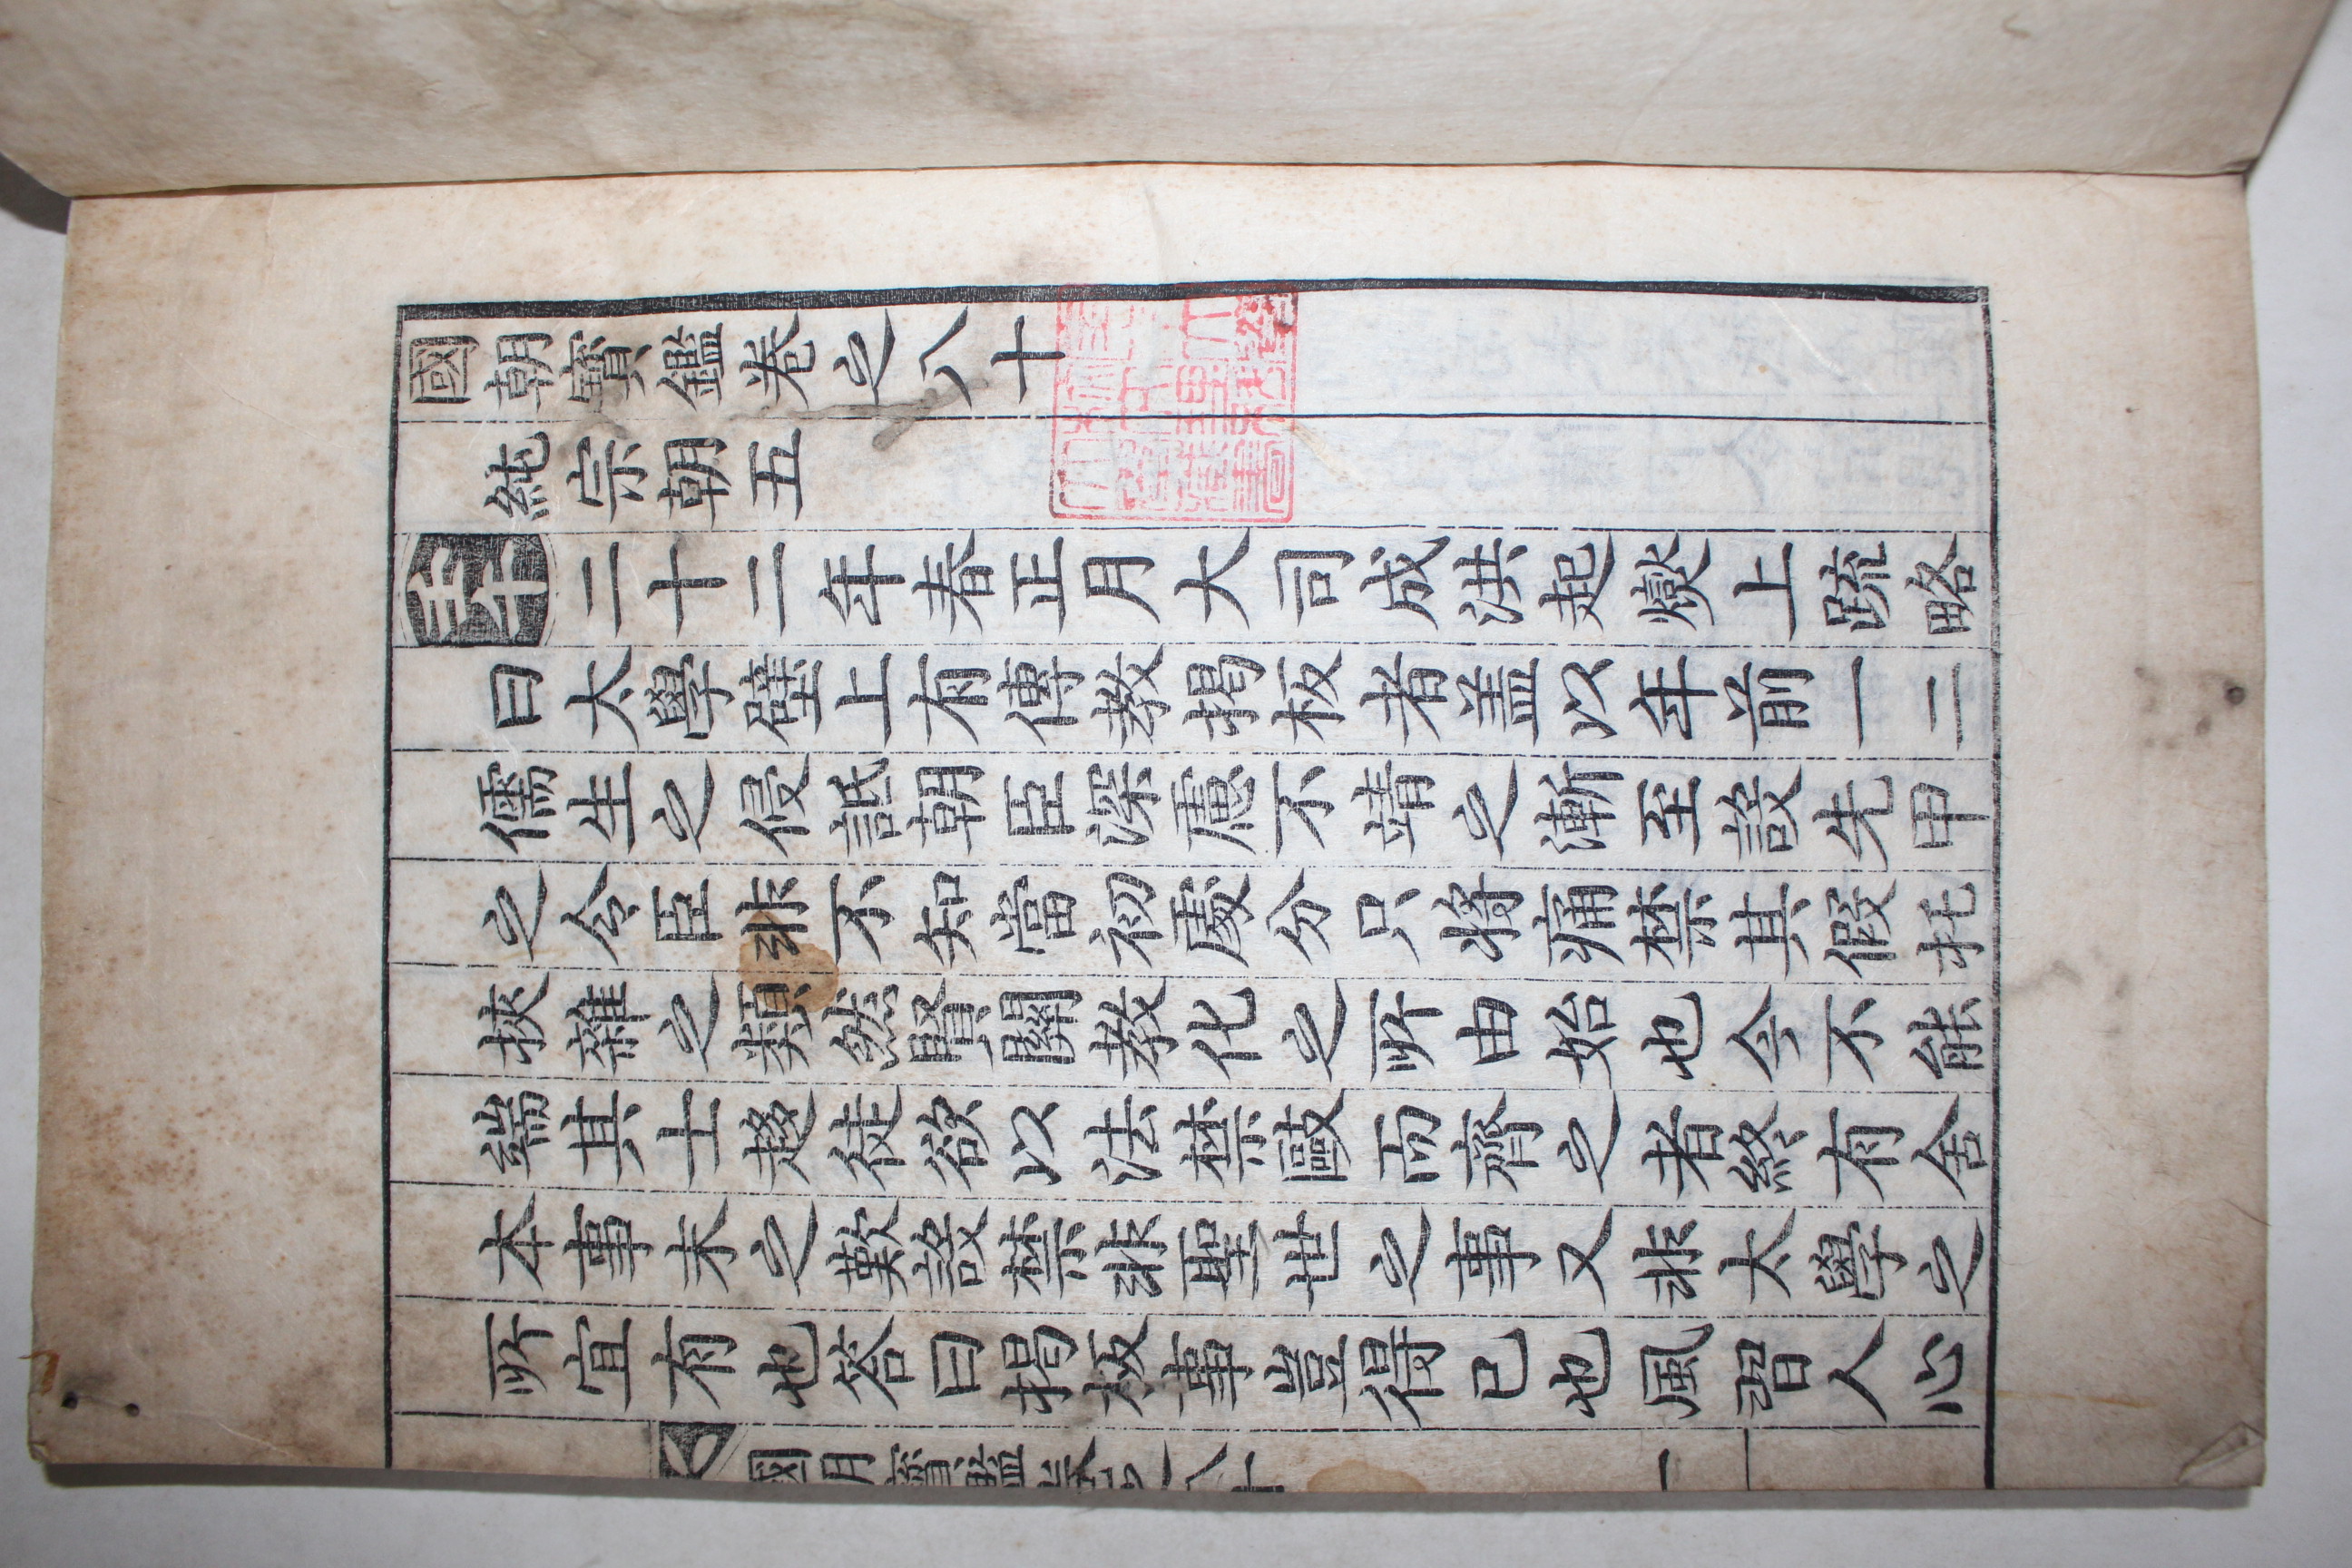 國朝寶鑑卷之八十
純宗朝五
壬午 二十二年春正月大司成洪起燮上疏略
曰太學壁上有傳教揭板者盖以年前一二
儒生之侵詆朝臣深慮不靖之漸至設先甲
之令臣非不知當初處分只將痛禁其假托
挾雜之類然賢關教化之所由始也今不能
端其士趍徒欲以法禁敺而齊之者終有舍
本事末之歎設禁非聖世之事又非太學之
所宜有也答曰揭板事豈得已也風習人心
國朝寶鑑卷之八十 一